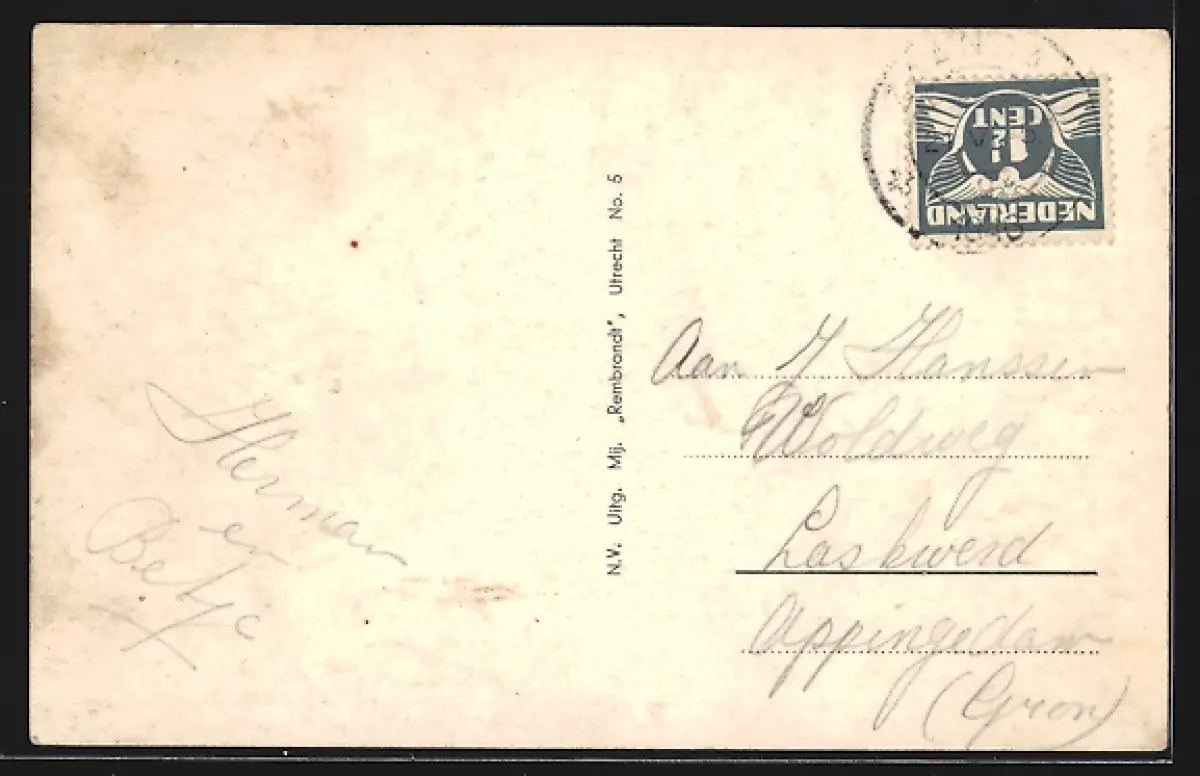 NEDERLAND
1½
CENT
N.V. Uitg. Mij. „Rembrandt", Utrecht No. 5
Aan J Hanssen
Woldweg
Laskwerd
Appingedam
(Gron)
Herman
en
Betje